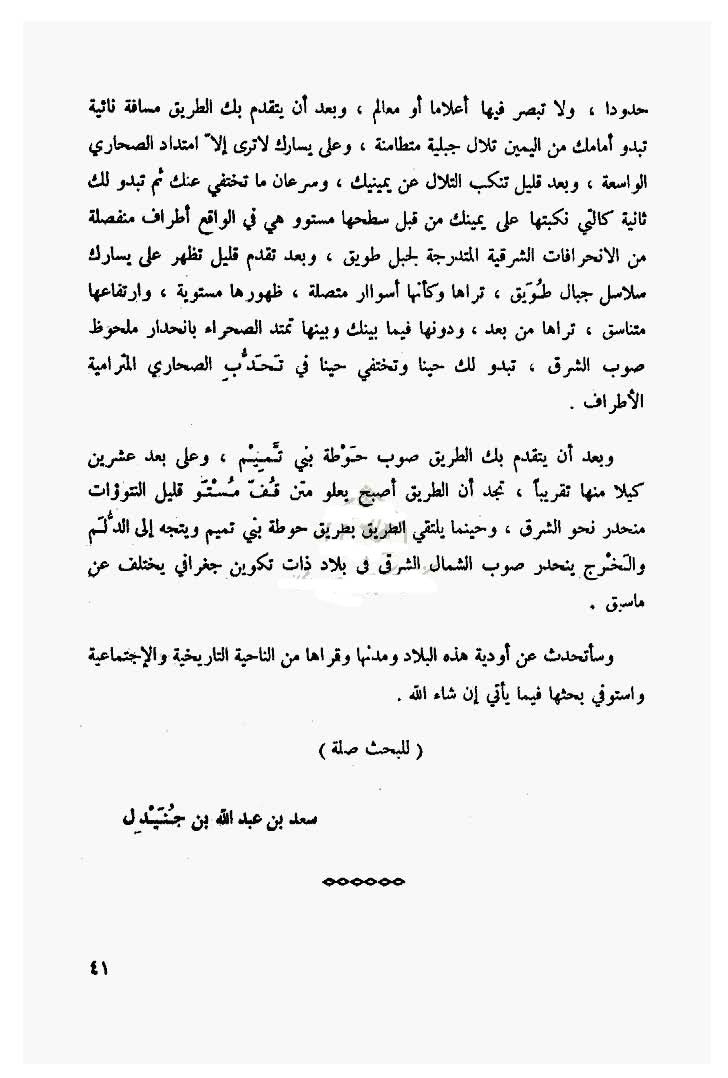 حدودا ، ولا تبصر فيها أعلاما أو معالم ، وبعد أن يتقدم بك الطريق مسافة نائية
تبدو أمامك من اليمين تلال جبلية متطامنة ، وعلى يسارك لاترى إلاّ امتداد الصحاري
الواسعة ، وبعد قليل تنكب التلال عن يمينيك ، وسرعان ما تختفي عنك ثم تبدو لك
ثانية كالتي نكبتها على يمينك من قبل سطحها مستوو هي في الواقع أطراف منفصلة
من الانحرافات الشرقية المتدرجة لجبل طويق ، وبعد تقدم قليل تظهر على يسارك
سلاسل جبال طُوَيق ، تراها وكأنها أسواار متصلة ، ظهورها مستوية ، وارتفاعها
متناسق ، تراها من بعد ، ودونها فيما بينك وبينها تمتد الصحراء بانحدار ملحوظ
صوب الشرق ، تبدو لك حينا وتختفي حينا في تَحَدُّبِ الصحاري المترامية
الأطراف .
وبعد أن يتقدم بك الطريق صوب حَوْطة بني تَّمِيْم ، وعلى بعد عشرين
كيلا منها تقريباً ، تجد أن الطريق أصبح يعلو متن قُفّ مُسْتَوٍ قليل النتوؤات
منحدر نحو الشرق ، وحينما يلتقي الطريق بطريق حوطة بني تميم ويتجه إلى الدُّلَم
والخْرج ينحدر صوب الشمال الشرقى فى بلاد ذات تكوين جغرافي يختلف عن
ماسبق .
وسأتحدث عن أودية هذه البلاد ومدنها وقراها من الناحية التاريخية والإجتماعية
واستوفي بحثها فيما يأتي إن شاء الله .
( للبحث صلة )
سعد بن عبد الله بن جُنَيْدِل
٤١